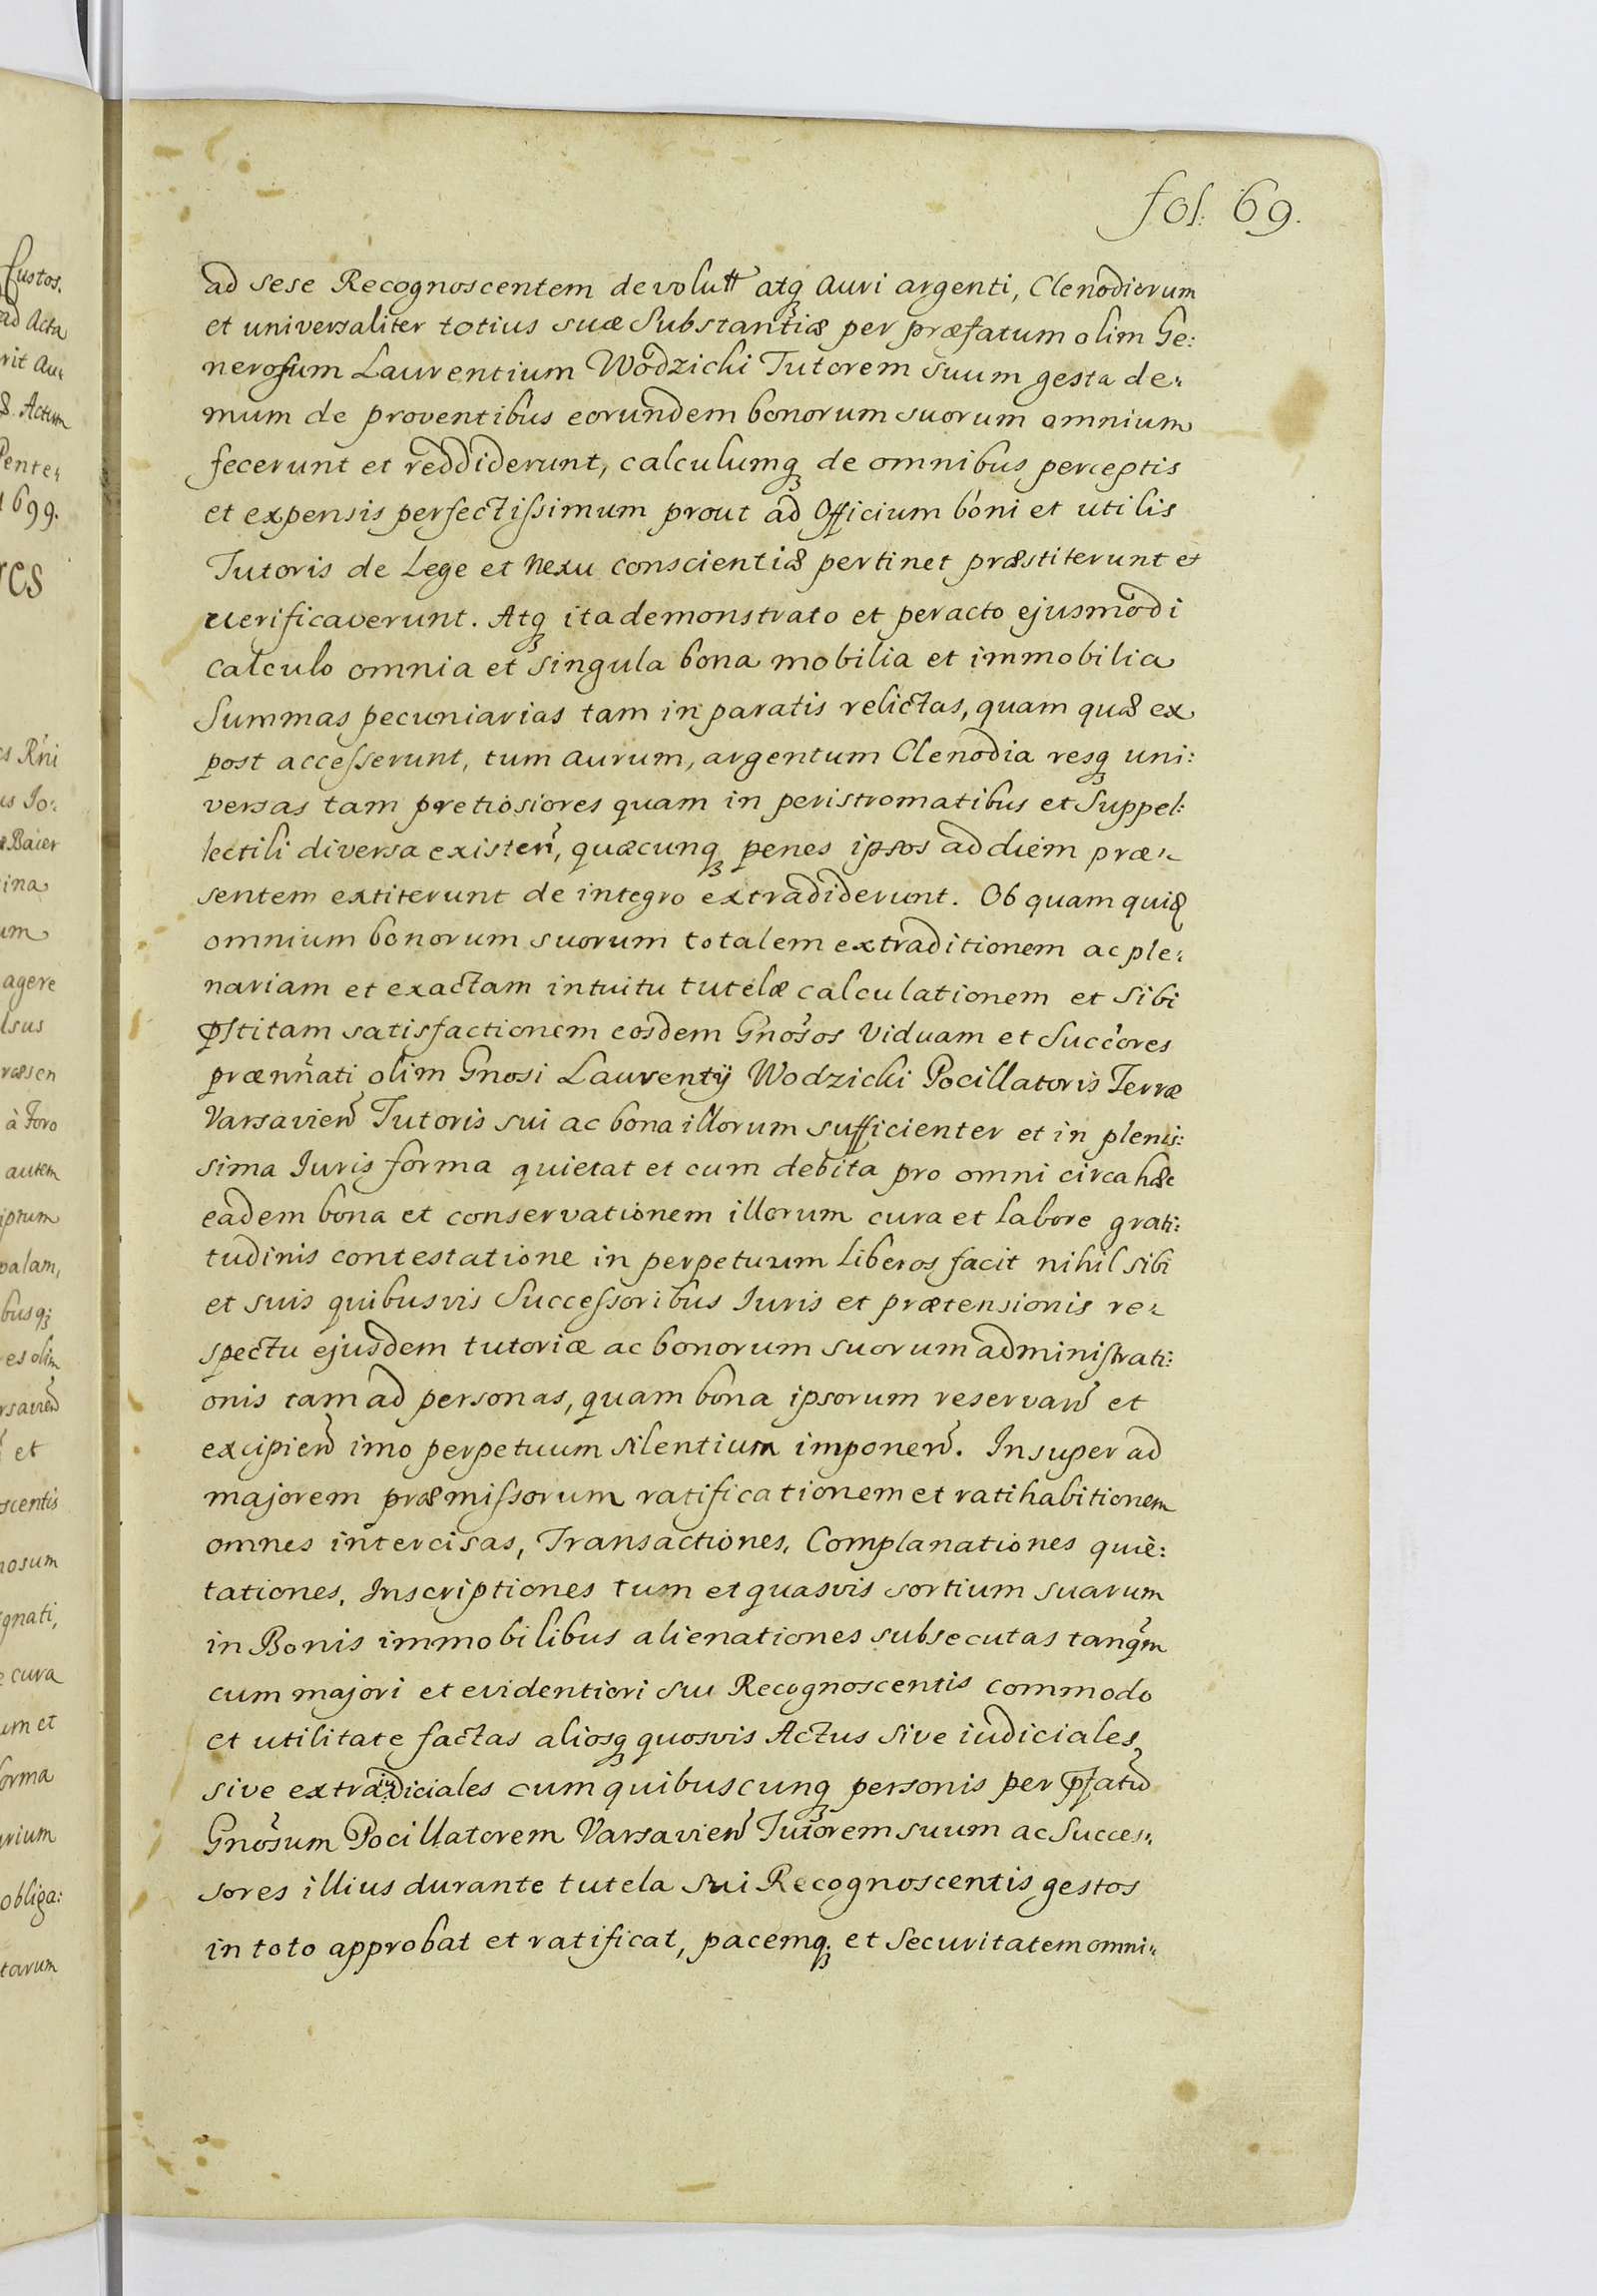 fol: 69.
ad sese Recognoscentem devolutt atq₃ auri argenti, Clenodiorum
et universaliter totius suæ Substantiæ per præfatum olim Ge:
nerosum Laurentium Wodzicki Tutorem suum gesta de:
mum de proventibus eorundem bonorum suorum omnium
fecerunt et reddiderunt, calculumq₃ de omnibus perceptis
et expensis perfectissimum prout ad Officium boni et utilis
Tutoris de Lege et nexu conscientiæ pertinet præstiterunt et
verificaverunt. Atq₃ ita demonstrato et peracto ejusmodi
calculo omnia et singula bona mobilia et immobilia
Summas pecuniarias tam in paratis relictas, quam quæ ex
post accesserunt, tum aurum, argentum Clenodia resq₃ uni:
versas tam pretiosiores quam in peristromatibus et Suppel:
lectili diversa existen̄, quæcunq₃ penes ipsos ad diem præ:
sentem extiterunt de integro extradiderunt. Ob quam quidē
omnium bonorum suorum totalem extraditionem ac ple:
nariam et exactam intuitu tutelæ calculationem et sibi
p̄stitam satisfactionem eosdem Gnōsos Viduam et Succ̄ores
prænn̄ati olim Gnosi Laurentÿ Wodzicki Pocillatoris Terræ
Varsavien̄ Tutoris sui ac bona illorum sufficienter et in plenis:
sima Iuris forma quietat et cum debita pro omni circa hæc
eadem bona et conservationem illorum cura et labore grati:
tudinis contestatione in perpetuum liberos facit nihil sibi
et suis quibusvis Successoribus Iuris et prætensionis re:
spectu ejusdem tutoriæ ac bonorum suorum administrati:
onis tam ad personas, quam bona ipsorum reservan̄ et
excipien̄ imo perpetuum silentium imponen̄. Insuper ad
majorem præmissorum ratificationem et ratihabitionem
omnes intercisas, Transactiones, Complanationes quie:
tationes, Inscriptiones tum et quasvis sortium suarum
in Bonis immobilibus alienationes subsecutas tanq̄m
cum majori et evidentiori sui Recognoscentis commodo
et utilitate factas aliosq₃ quosvis Actus sive iudiciales,
sive extraiudiciales cum quibuscunq₃ personis per p̄fatū
Gnōsum Pocillatorem Varsavien̄ Tutorem suum ac Succes:
sores illius durante tutela sui Recognoscentis gestos
in toto approbat et ratificat, pacemq₃ et Securitatem omni: